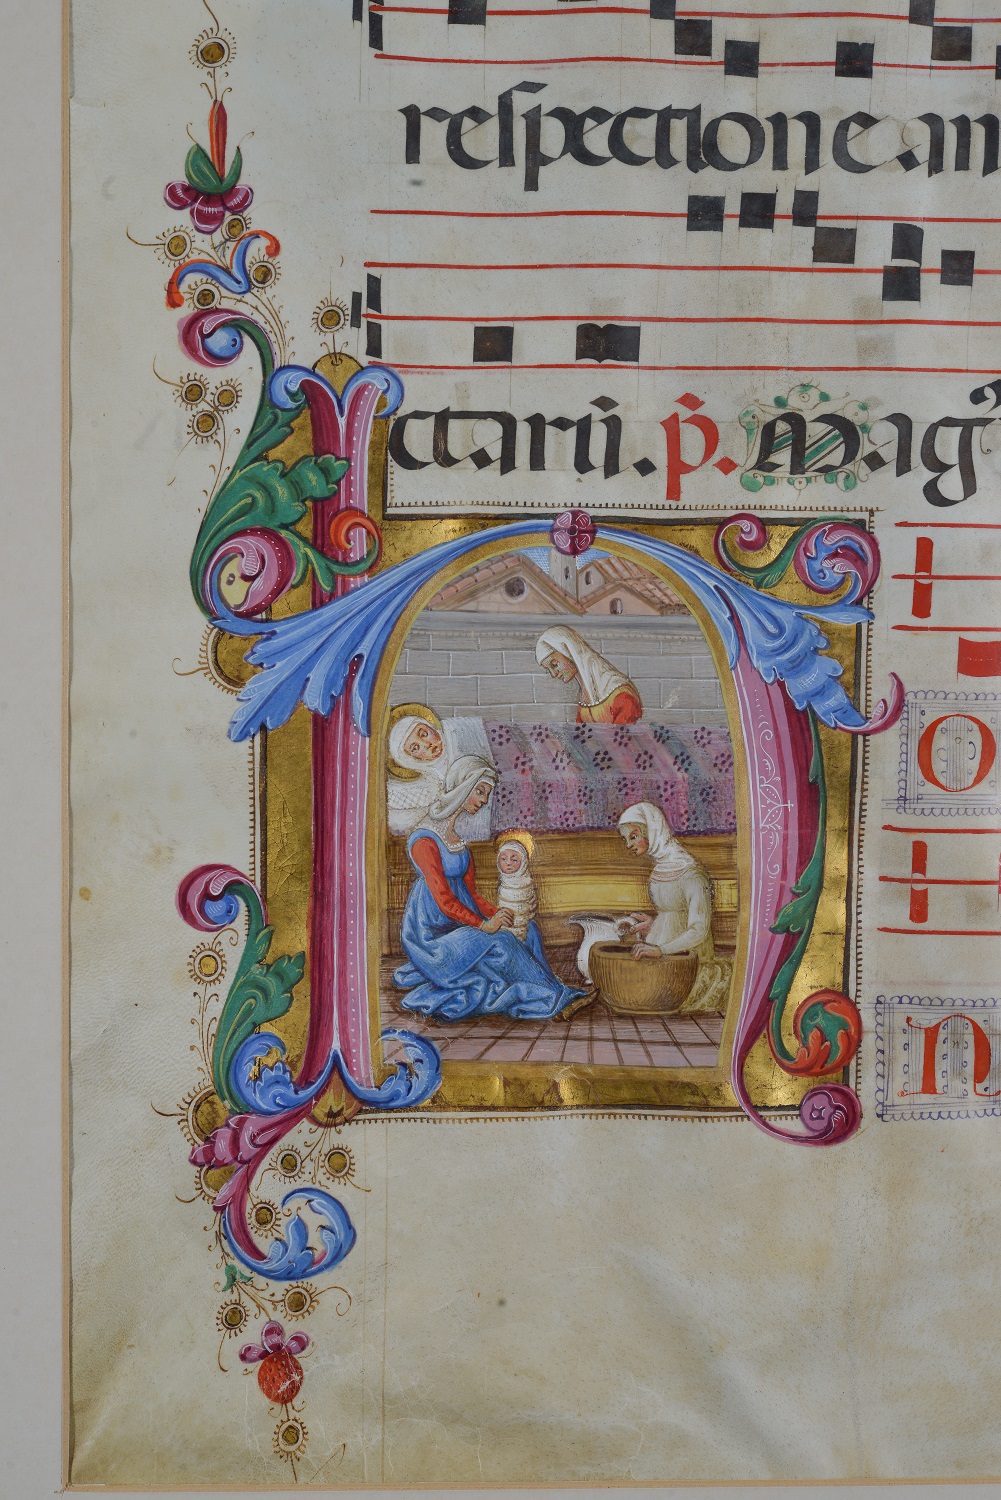 respectione an
ctarii. p̄. Magꝰ
N
O
n